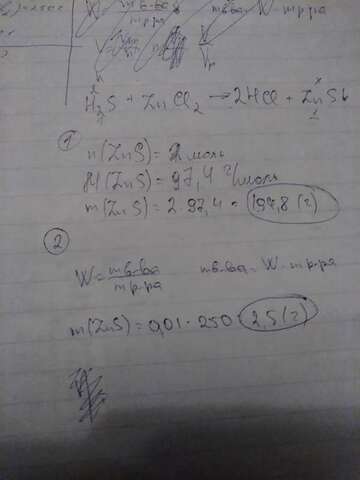 H₂S + ZnCl₂ → 2HCl + ZnS↓
1
n(ZnS) = 2 моль
M(ZnS) = 97,4 г/моль
m(ZnS) = 2 · 97,4 = 197,8 (г)
2
W = mв-ва / mр-ра mв-ва = W · mр-ра
m(ZnS) = 0,01 · 250 = 2,5 (г)